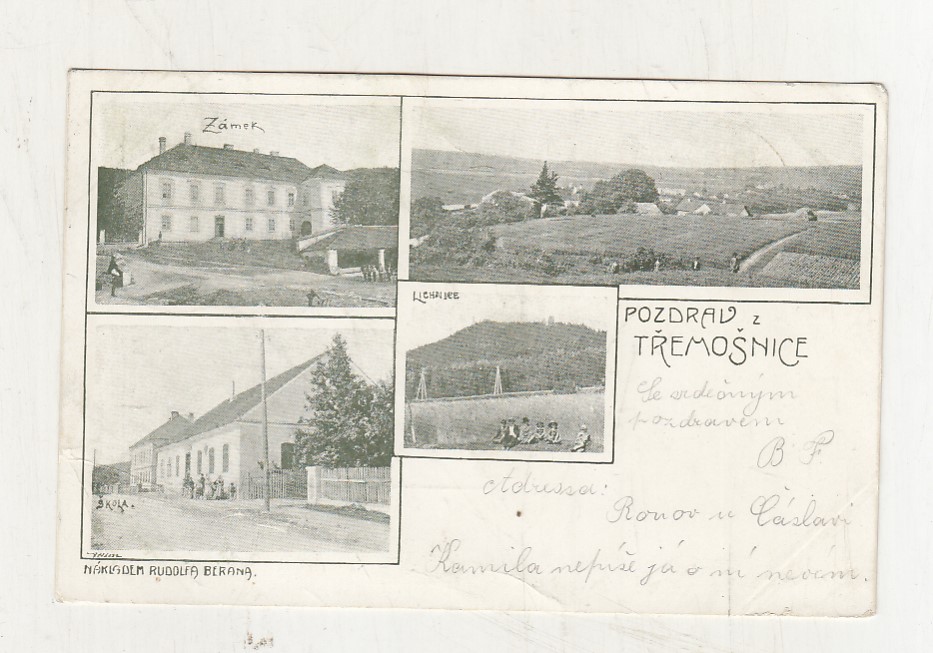 Zámek
LICHNICE
POZDRAV z
TŘEMOŠNICE
Se srdečným
pozdravem
B F
Adressa:
Ronov u Čáslavi
Kamila nepíše já o ní nevím.
ŠKOLA.
NÁKLADEM RUDOLFA BERANA.